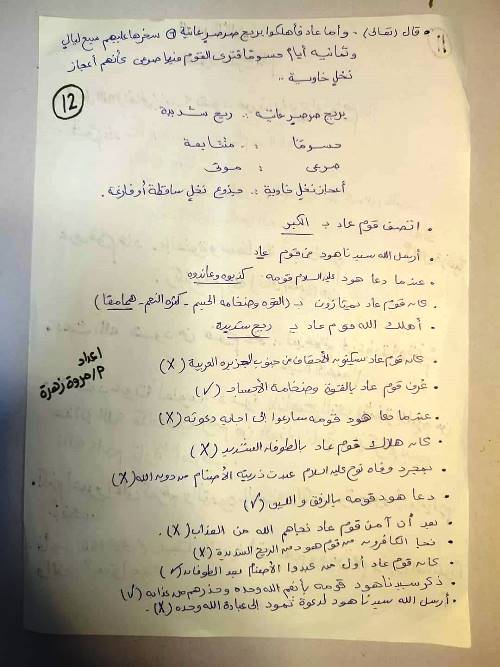 • قال (تعالى) .. وأما عاد فأهلكوا بريح صرصر عاتية ٦ سخرها عليهم سبع ليالي
وثمانيه أيام حسوما فترى القوم فيها صرعى كأنهم أعجاز
نخل خاوية ..
12
بريح صرصر عاتيه :. ريح شديدة
حسومًا :. متتابعة
صرعى : موتى
أعجاز نخل خاوية :. جذوع نخل ساقطة أو فارغة.
• اتصف قوم عاد بـ الكبر
• أرسل الله سيدنا هود من قوم عاد
• عندما دعا هود عليه السلام قومه كذبوه وعاندوه
• كان قوم عاد يمتازون بـ (القوه وضخامه الجسم - كثره النعم - هما معًا)
• أهلك الله قوم عاد بـ ريح شديدة
• كان قوم عاد يسكنون الأحقاف من جنوب الجزيره العربية (X)
اعداد
م/مروة زهرة
• عرف قوم عاد بالقوة وضخامة الأجساد (✓)
• عندما دعا هود قومه سارعوا إلى اجابه دعوته (X)
• كان هلاك قوم عاد بالطوفان الشديد (X)
• بمجرد وفاه نوح عليه السلام عبدت ذريته الأصنام من دون الله (X)
• دعا هود قومه بالرفق واللين (✓)
• بعد أن آمن قوم عاد نجاهم الله من العذاب (X).
• نجا الكافرون من قوم هود من الريح الشديدة (X)
• كان قوم عاد أول من عبدوا الأصنام بعد الطوفان (✓)
• ذكر سيدنا هود قومه بأنعم الله وحده وحذرهم من عذابه (✓)
• أرسل الله سيدنا هود لدعوة ثمود إلى عبادة الله وحده (X).